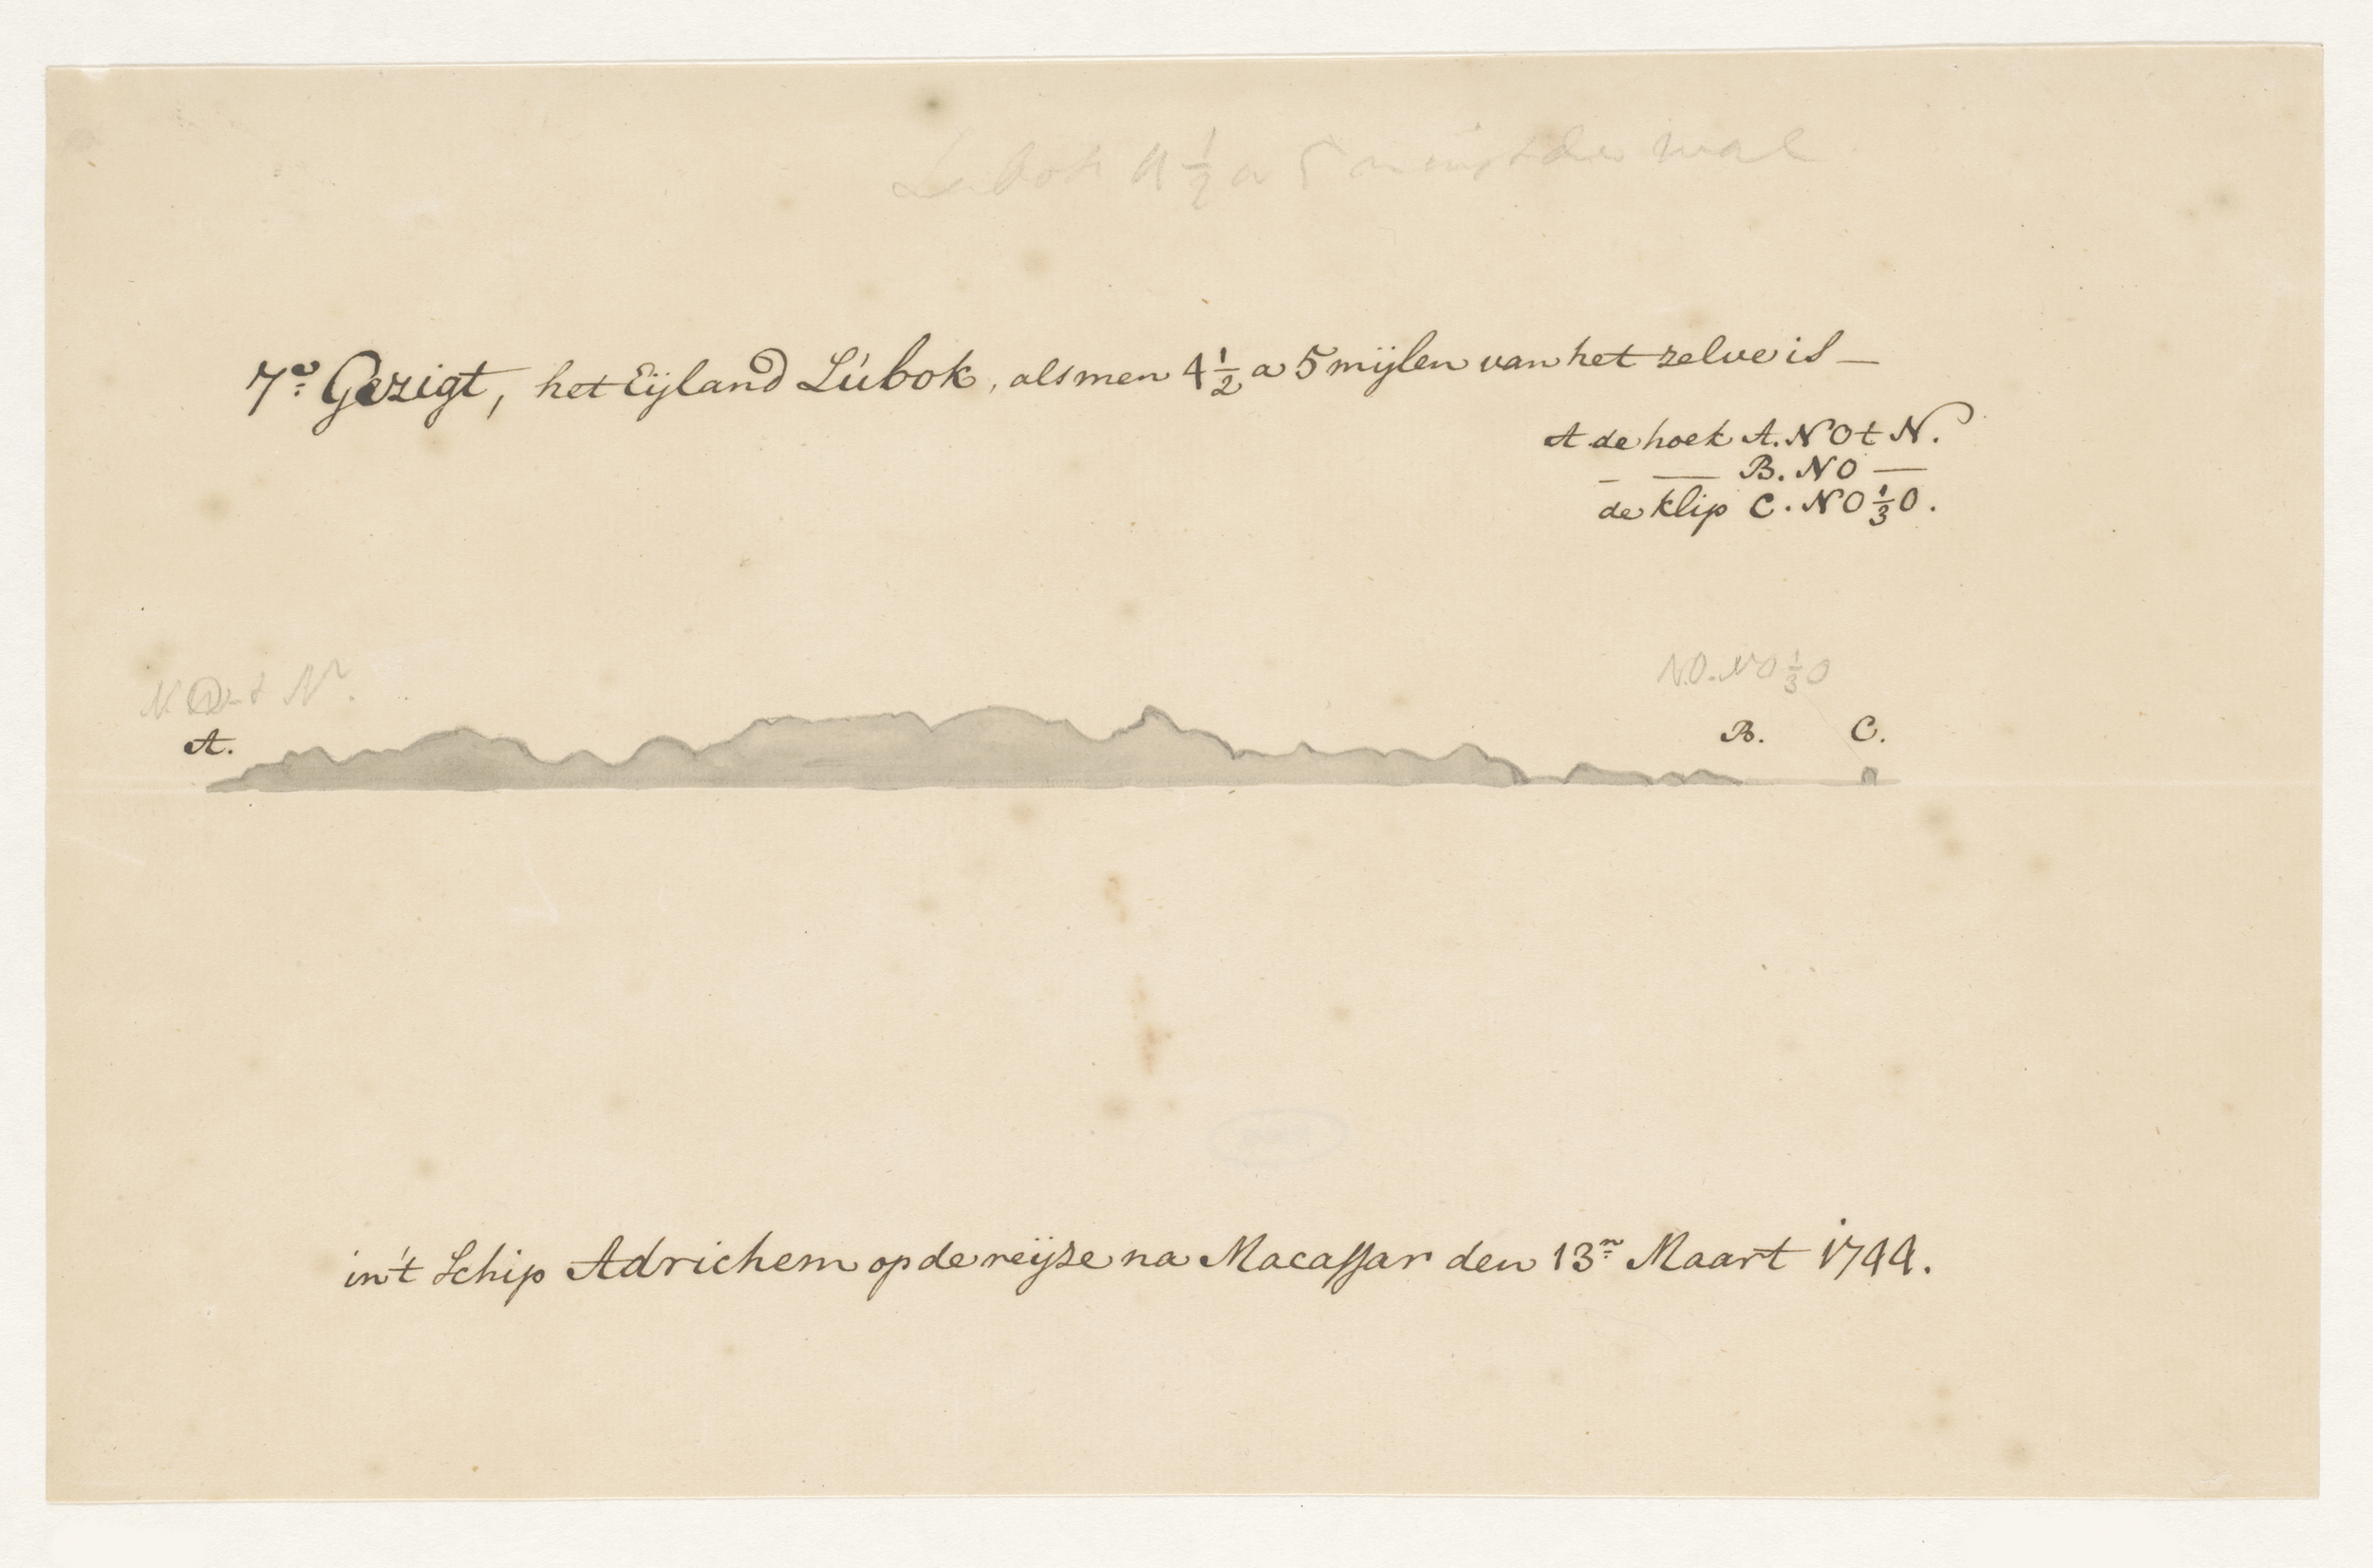 Lubok 4 1/2 a 5 m uijt de wal
7e: Gezigt, het Eijland Lúbok, als men 4 1/2 a 5 mijlen van het zelve is —
A de hoek A. NOt N.
— — B. NO —
de klip C. NO 1/3 O.
N.O. NO 1/3 O
A.
B. C.
in't Schip Adrichem op de reijse na Macassar den 13n: Maart 1744.